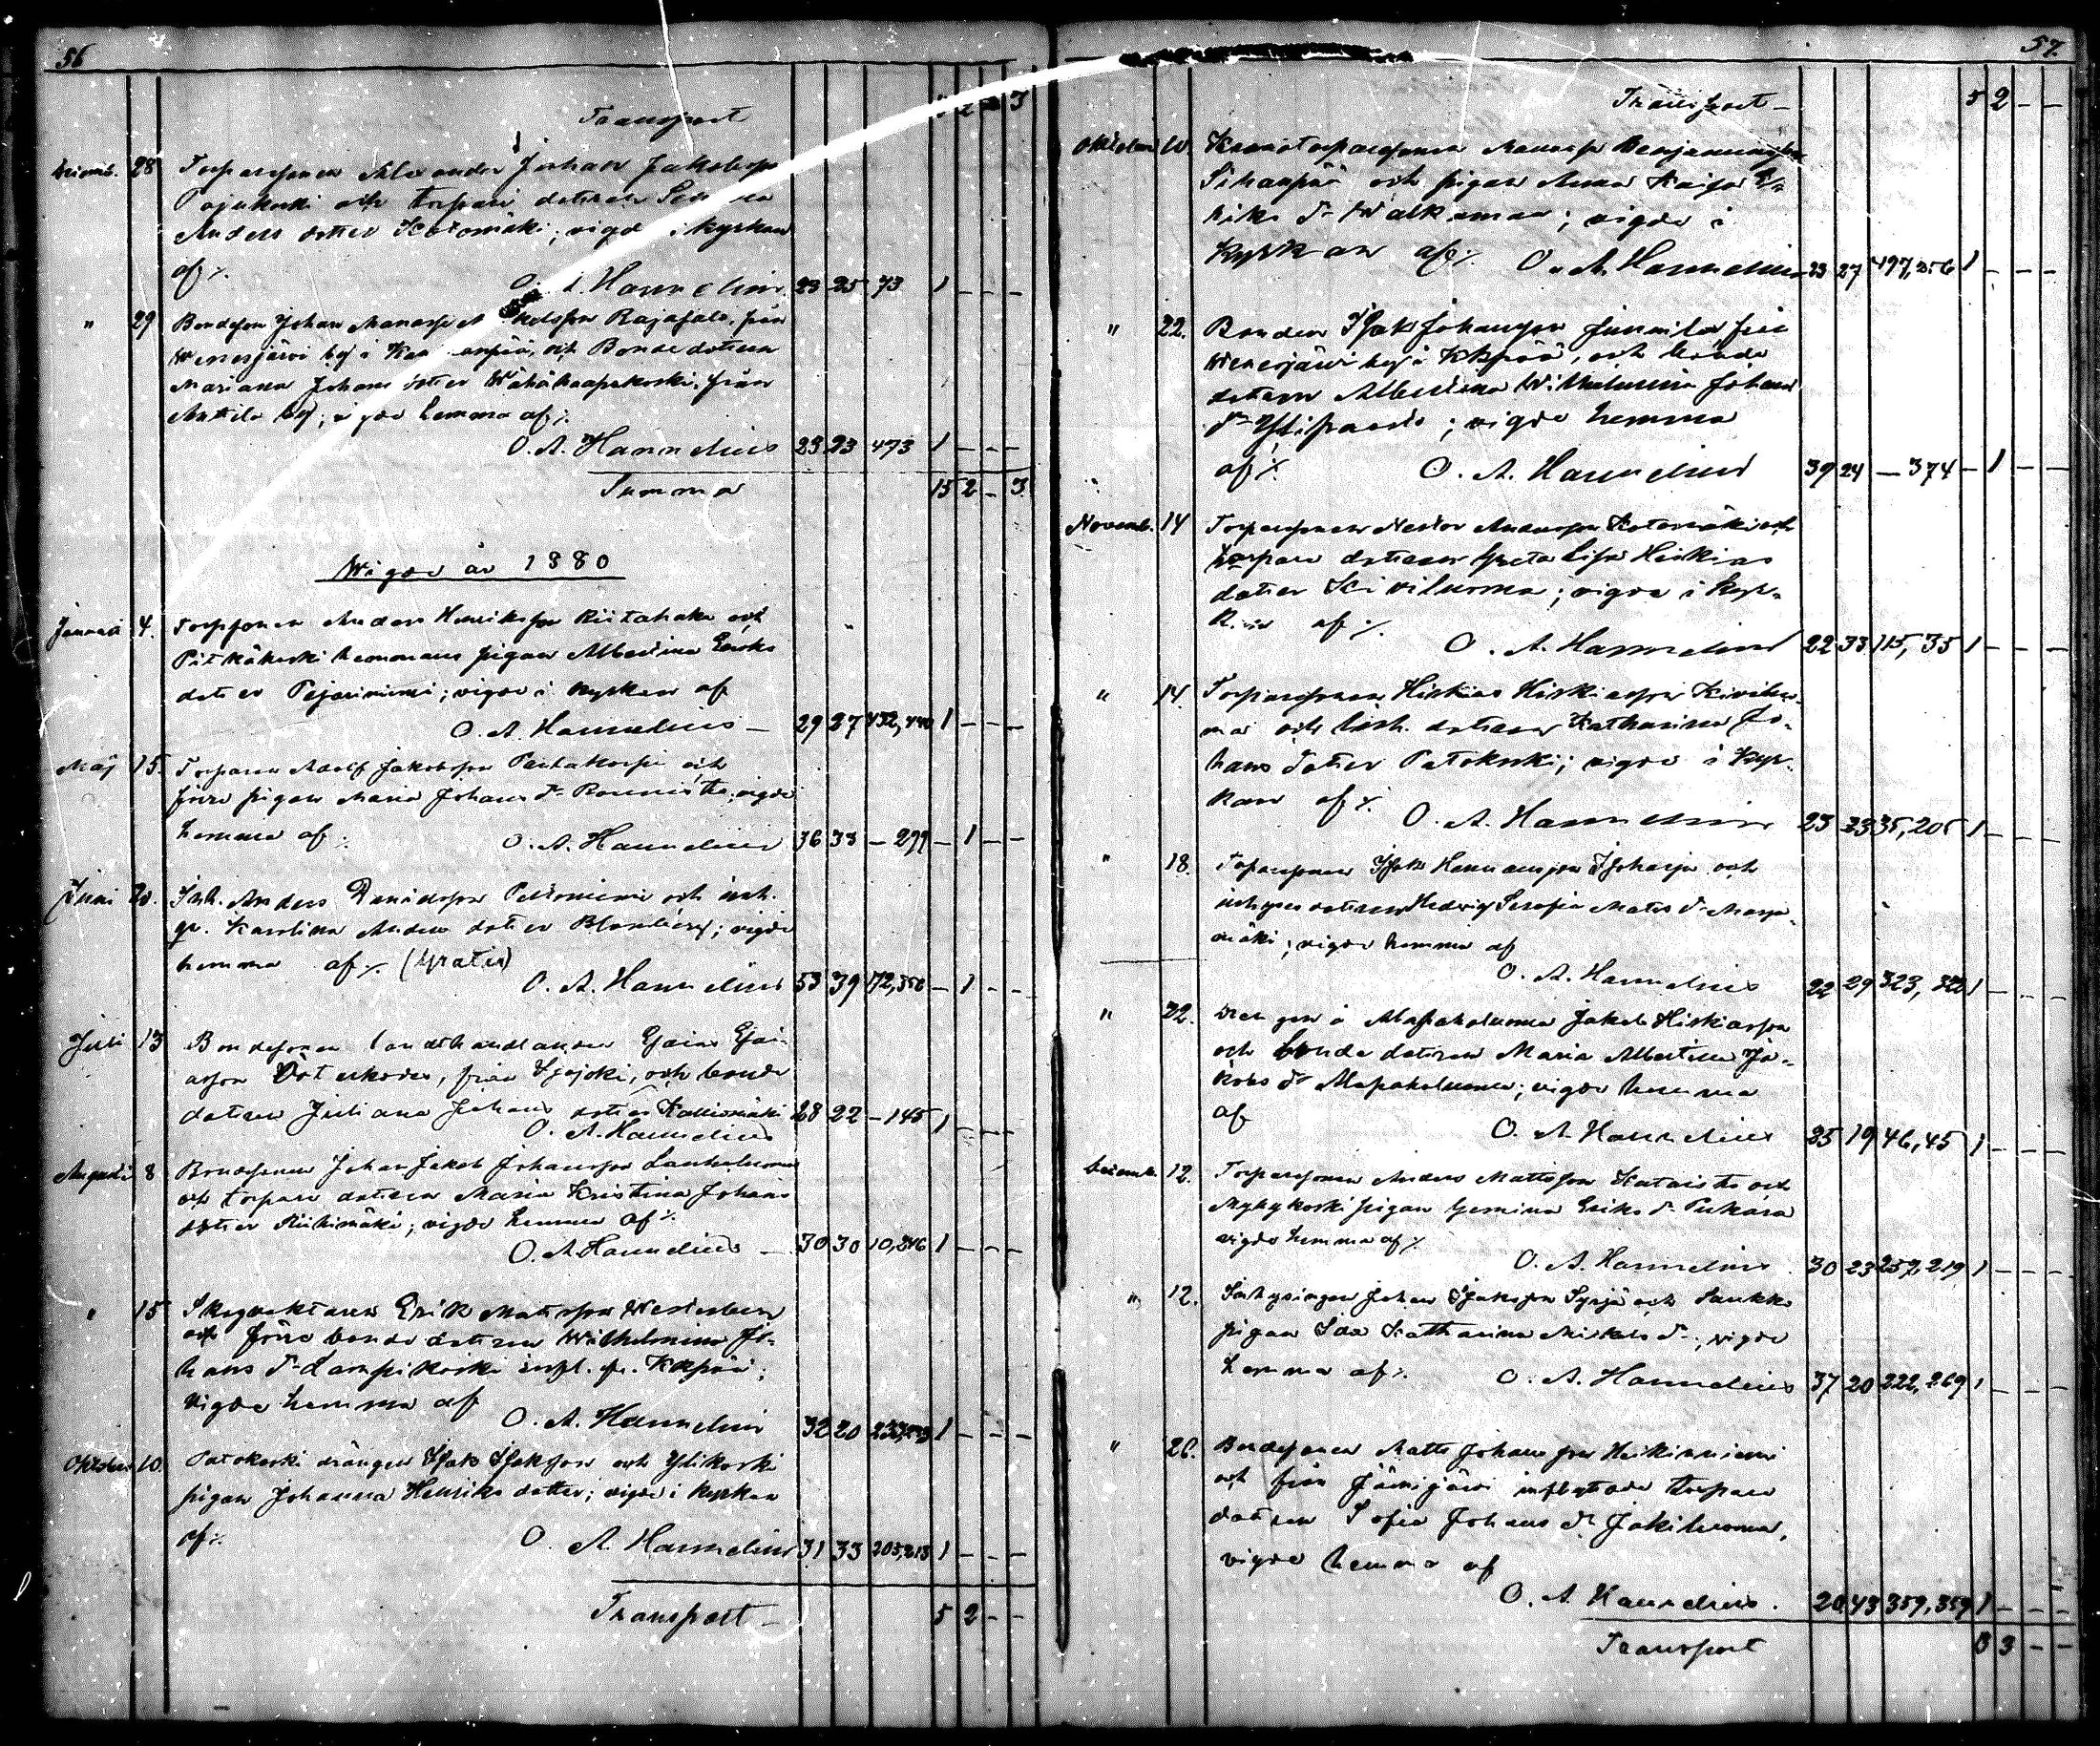 56
Transport 2 - 3
28 Torparesonen Alexander Johan Jakobsson
Pajukoski och torpare dottren
Anders dotter Koiomäki; vigde i kyrkan
af ⁒ O. A. Hannelius 23 25 73 1 - - -
" 29 Bondeson Johan Manasse Rajasalo, från
Wenesjärvi by i och Bondedottren
Mariana Johans dotter Wähähaapakoski, från
Anttila by; hemma af ⁒
O. A. Hannelius 23 23 473 1 - - -
Summa 15 2 - 3
Wigde år 1880
Januari 4. Torpsonen Anders Henriksson Riitahaka och
Pitkäkoski hemmans pigan Albertina Eriks
dotter Pejariniemi; vigde i kyrkan af
O. A. Hannelius - 29 27 432, 440 1 - - -
Maj 15. Torparen Adolf Jakobsson och
förre pigan Maria Johans dr vigde
hemma af ⁒ O. A. Hannelius 36 33 - 299 - 1 - -
Juni 20. Inh. Anders Davidsson Peltoniemi och inh.
qv. Karolina Anders dotter Blomberg; vigde
hemma af ⁒ (Gratis)
O. A. Hannelius 53 39 172, 356 - 1 - -
Juli 13 Bondesonen landthandlanden Esaias Esai-
asson från och bonde
dottren Juliana Johans dotter Kalliomäki 28 22 - 145 1 - - -
O. A. Hannelius
Augusti 8 Bondesonen Johan Jakob Johansson Lauhaluoma
och torpare dottren Maria Kristina Johans
dotter Riihimäki; vigde hemma af ⁒
O. A. Hannelius - 30 30 10, 216 1 - - -
" 15 Skogvaktaren Erik Mattsson Westerberg
och förre bonde dottren Wilhelmina Jo-
hans dr Lampikoski infl. fr. Kkpää;
vigde hemma af
O. A. Hannelius 32 20 1 - - -
Oktober 10. Patokoski drängen Isak Isaksson och Ylikoski
pigan Johanna Henriks dotter; vigde i kyrkan
af ⁒ O. A. Hannelius 31 33 203, 213 1 - - -
Transport - 5 2 - -
57.
Transport - 5 2 - -
Oktober 10. Kronotorparesonen Manasse Benjaminsson
Sikanpää och pigan Anna Kaisa
riks dr Walkamaa; vigde i
Kyrkan af ⁒ O. A. Hannelius 23 27 497, 356 1 - - -
" 22. Bonden Isak Johansson från
Wenesjärvi by i Kkpää, och bonde
dottren Albertina Wilhelmina Johans
dr Ylipaavo; vigde hemma
af ⁒ O. A. Hannelius 39 24 - 374 - 1 - -
Novemb. 14 Torparesonen Nestor Andersson Kotomäki och
torpare dottren Greta Lisa Hiskias
dotter Kiviluoma; vigde i kyr-
kan af ⁒
O. A. Hannelius 22 33 115, 35 1 - - -
" 14. Torparesonen Hiskias Hiskiasson Kiviluo-
ma och inh. dottren Katharina Jo-
hans dotter Patokoski; vigde i kyr-
kan af ⁒
O. A. Hannelius 23 23 35, 205 1 - - -
" 18. Torparesonen Isak Hermansson Isoharja och
inhyses dottren Hedvig Serafia Matts dr Marja-
mäki; vigde hemma af
O. A. Hannelius 22 29 323, 322 1 - - -
" 22. å Alapaholuoma Jakob Hiskiasson
och bonde dottren Maria Albertina Ja-
kobs dr Alapaholuoma; vigde hemma
af O. A. Hannelius 25 19 46, 45 1 - - -
Decemb. 12. Torparesonen Anders Mattsson Kataisto och
Myllykoski pigan Gemina Eriks dr Pukara
vigde hemma af ⁒
O. A. Hannelius 30 23 257, 219 1 - - -
" 12. Inhysingen Johan Isaksson Syrjä och Saukko
pigan Ida Katharina Mickels dr; vigde
hemma af ⁒ O. A. Hannelius 37 20 222, 269 1 - - -
" 26. Bondesonen Matts Johansson Heikinniemi
och från Jämijärvi inflyttade torpare
dottren Sofia Johans dr Jokiluoma,
vigde hemma af
O. A. Hannelius. 20 43 359, 359 1 - - -
Transport 13 3 - -